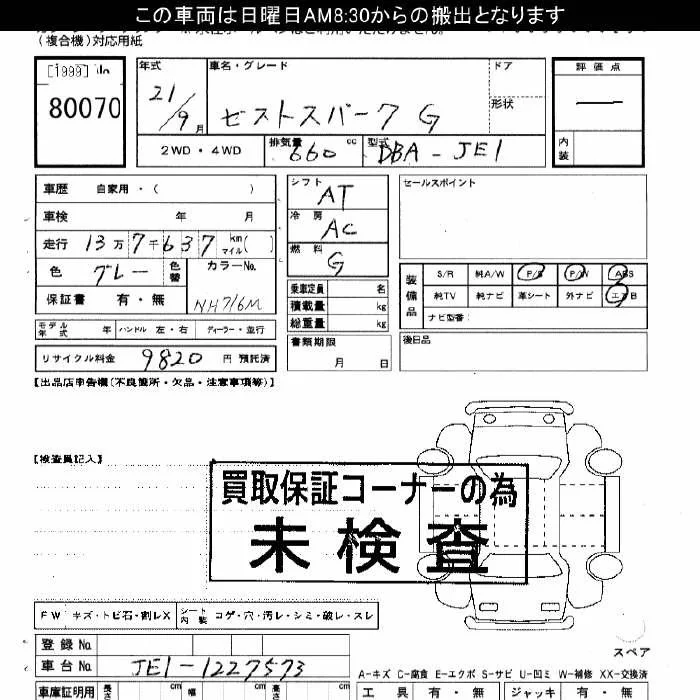 この車両は日曜日AM8:30からの搬出となります
(複合機)対応用紙
[1999] No
80070
年式
21/9月
車名・グレード
ゼストスパーク G
ドア
形状
評価点
―
内装
2WD・4WD
排気量 660 cc
型式 DBA-JE1
車歴 自家用・( )
車検 年 月
走行 13万7千637 km マイル ( )
色 グレー 色替
カラーNo.
NH716M
保証書 有・無
シフト AT
冷房 AC
燃料 G
乗車定員 名
積載量 kg
総重量 kg
セールスポイント
装備品
S/R 純A/W P/S P/W ABS
純TV 純ナビ 革シート 外ナビ エアB
ナビ型番:
モデル年式 年 ハンドル 左・右 ディーラー・並行
リサイクル料金 9820 円 預託済
書類期限
月 日
後日品
【出品店申告欄(不良箇所・欠品・注意事項等)】
【検査員記入】
買取保証コーナーの為
未検査
FW キズ・トビ石・割レX
シート内装 コゲ・穴・汚レ・シミ・破レ・スレ
スペア
登録No.
車台No. JE1-1227573
A-キズ C-腐食 E-エクボ S-サビ U-凹ミ W-補修 XX-交換済
車庫証明用 長さ cm 幅 cm 高さ cm
工具 有・無 ジャッキ 有・無